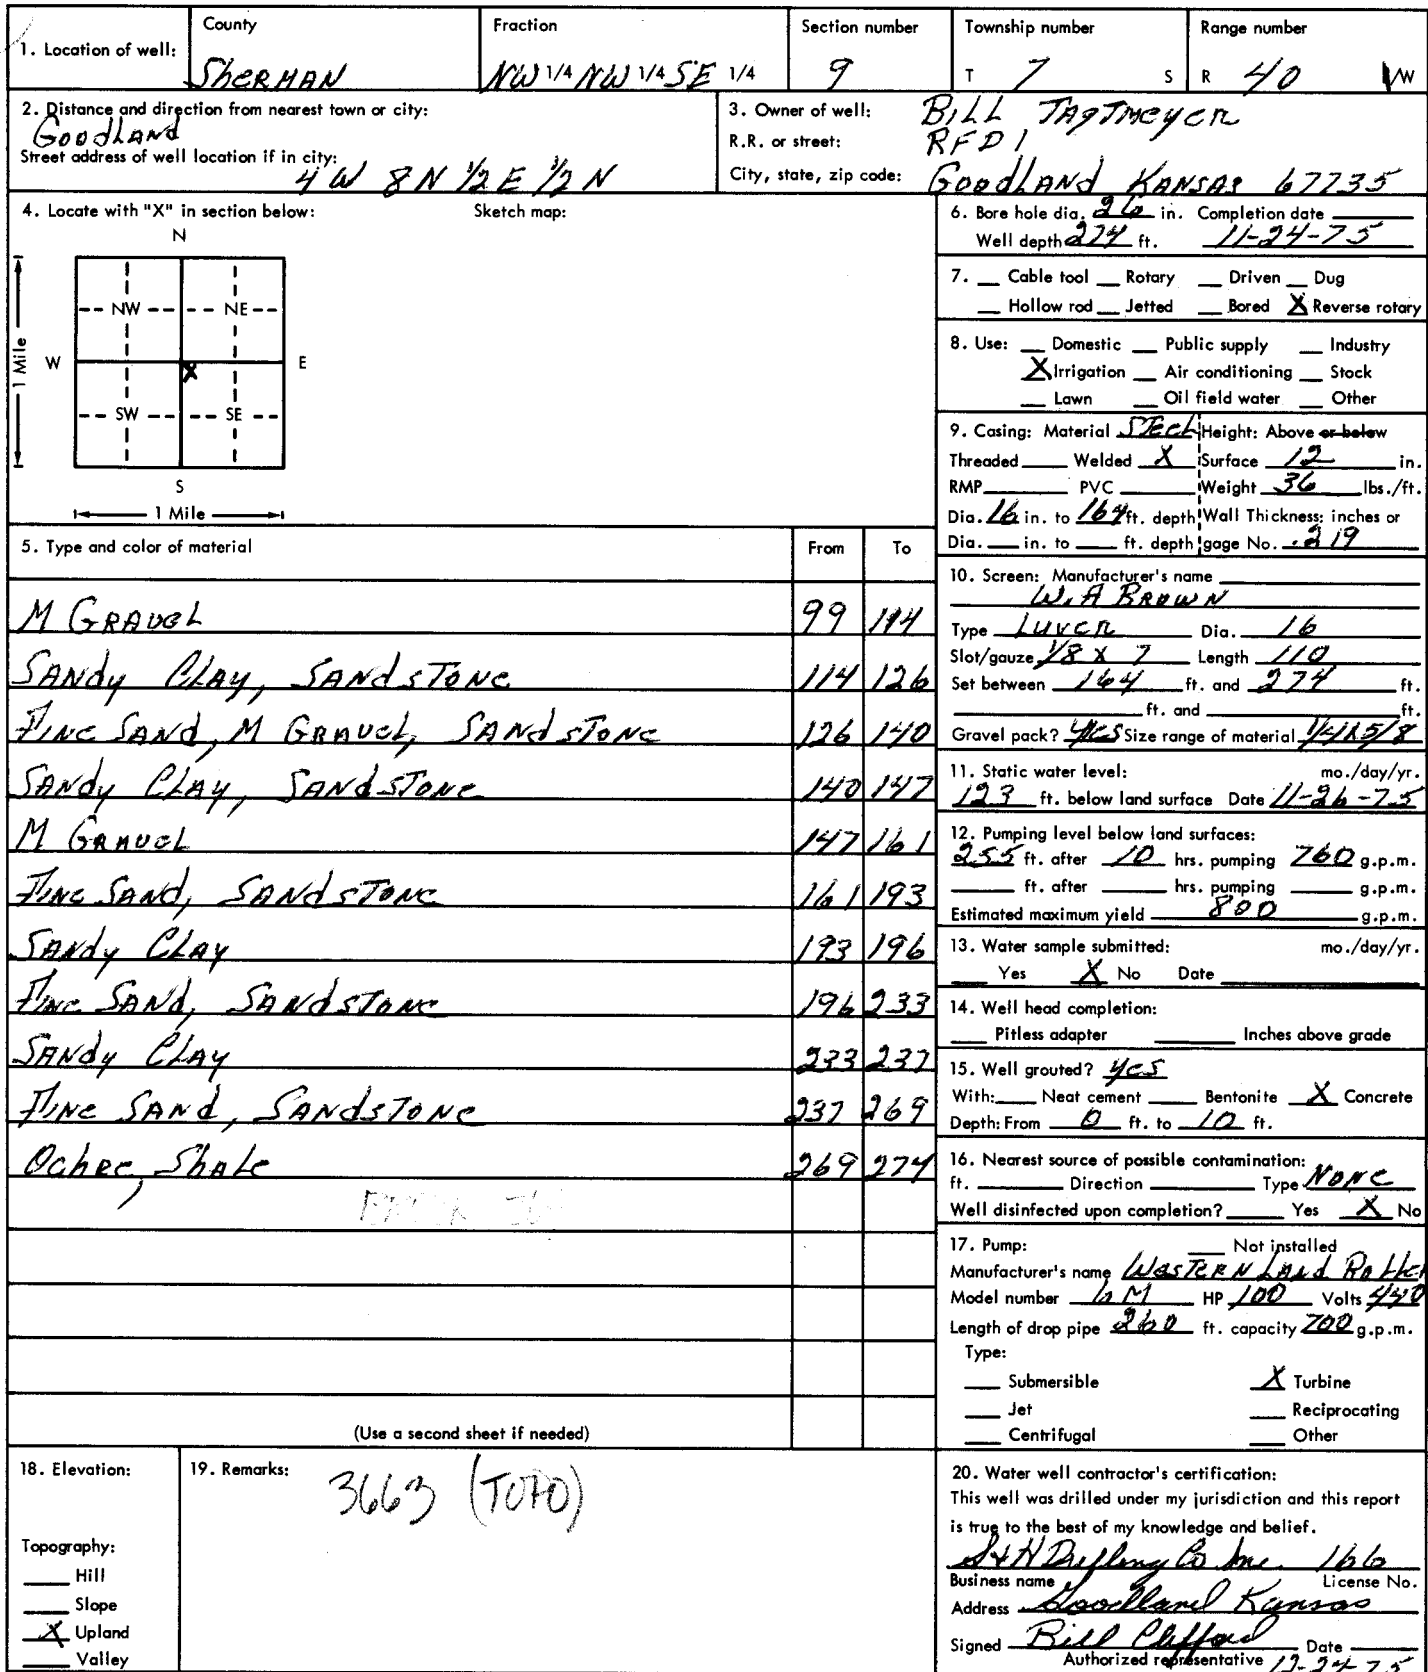 1. Location of well: County Sherman Fraction NW 1/4 NW 1/4 SE 1/4 Section number 9 Township number T 7 S Range number R 40 W
2. Distance and direction from nearest town or city:
Goodland
Street address of well location if in city:
4 W 8 N 1/2 E 1/2 N
3. Owner of well: Bill Tagtmeyer
R.R. or street: RFD 1
City, state, zip code: Goodland Kansas 67735
4. Locate with "X" in section below: Sketch map:
N
NW NE
W X E
1 Mile
SW SE
S
1 Mile
5. Type and color of material From To
M Gravel 99 114
Sandy Clay, Sandstone 114 126
Fine Sand, M Gravel, Sandstone 126 140
Sandy Clay, Sandstone 140 147
M Gravel 147 161
Fine Sand, Sandstone 161 193
Sandy Clay 193 196
Fine Sand, Sandstone 196 233
Sandy Clay 233 237
Fine Sand, Sandstone 237 269
Ochre, Shale 269 274
(Use a second sheet if needed)
6. Bore hole dia. 26 in. Completion date
Well depth 274 ft. 11-24-75
7. Cable tool Rotary Driven Dug
Hollow rod Jetted Bored X Reverse rotary
8. Use: Domestic Public supply Industry
X Irrigation Air conditioning Stock
Lawn Oil field water Other
9. Casing: Material Steel Height: Above or below
Threaded Welded X Surface 12 in.
RMP PVC Weight 36 lbs./ft.
Dia. 16 in. to 164 ft. depth Wall Thickness: inches or
Dia. in. to ft. depth gage No. .219
10. Screen: Manufacturer's name
W.A Brown
Type Luver Dia. 16
Slot/gauze 1/8 x 7 Length 110
Set between 164 ft. and 274 ft.
ft. and ft.
Gravel pack? Yes Size range of material
11. Static water level: mo./day/yr.
123 ft. below land surface Date 11-26-75
12. Pumping level below land surfaces:
255 ft. after 10 hrs. pumping 760 g.p.m.
ft. after hrs. pumping g.p.m.
Estimated maximum yield 800 g.p.m.
13. Water sample submitted: mo./day/yr.
Yes X No Date
14. Well head completion:
Pitless adapter Inches above grade
15. Well grouted? Yes
With: Neat cement Bentonite X Concrete
Depth: From 0 ft. to 10 ft.
16. Nearest source of possible contamination:
ft. Direction Type None
Well disinfected upon completion? Yes X No
17. Pump: Not installed
Manufacturer's name Western Land Roller
Model number 6 M HP 100 Volts 440
Length of drop pipe 260 ft. capacity 700 g.p.m.
Type:
Submersible X Turbine
Jet Reciprocating
Centrifugal Other
18. Elevation:
Topography:
Hill
Slope
X Upland
Valley
19. Remarks: 3663 (TOPO)
20. Water well contractor's certification:
This well was drilled under my jurisdiction and this report
is true to the best of my knowledge and belief.
S+H Drilling Co Inc. 166
Business name License No.
Address Goodland Kansas
Signed Bill Clifford Date
Authorized representative 12-24-75